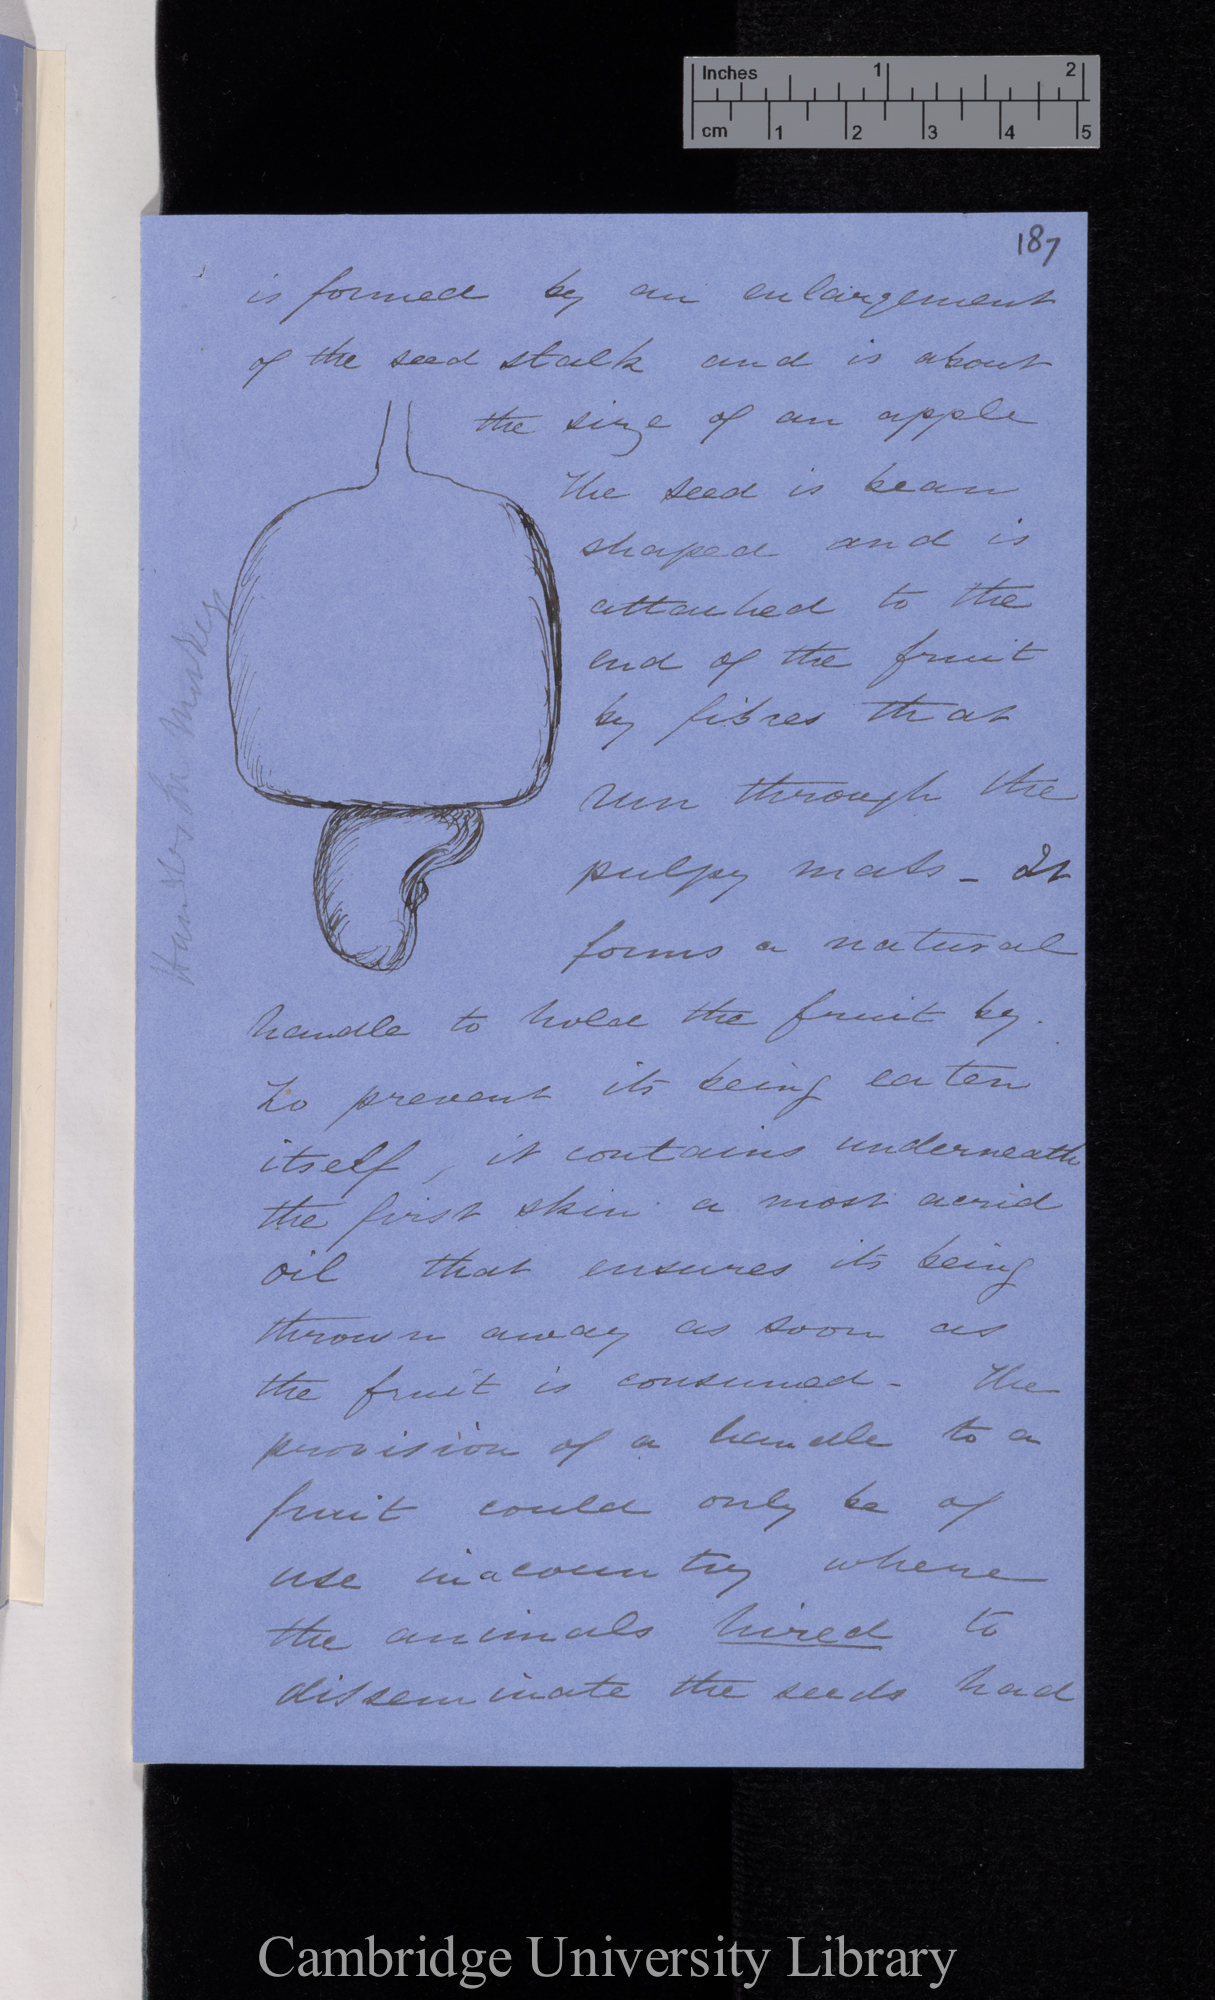 Inches 1 2
cm 1 2 3 4 5
187
is formed by an enlargement
of the seed stalk and is about
the size of an apple
The seed is bean
shaped and is
attached to the
end of the fruit
by fibres that
run through the
pulpy mass – It
forms a natural
handle to hold the fruit by.
To prevent its being eaten
itself, it contains underneath
the first skin a most acrid
oil that ensures its being
thrown away as soon as
the fruit is consumed – The
provision of a handle to a
fruit could only be of
use in a country where
the animals hired to
disseminate the seeds had
Cambridge University Library